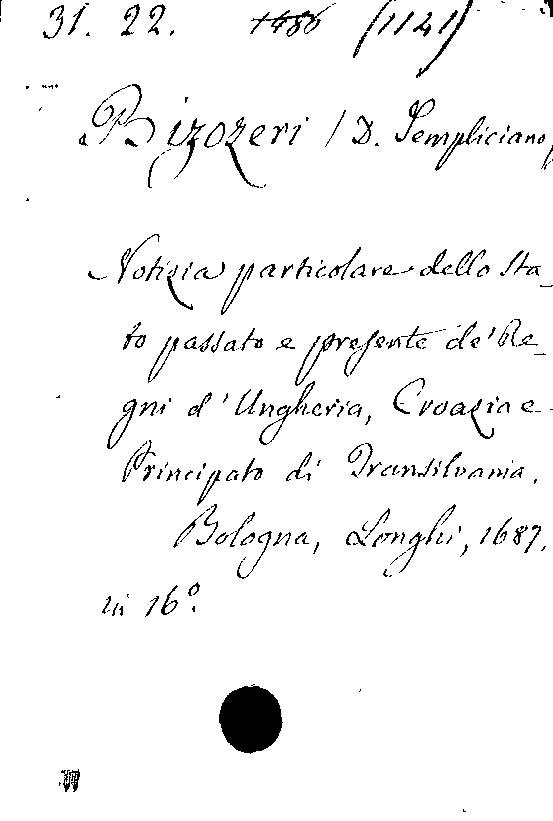 31. 22. 1486 (1141)
Bizozeri / D. Sempliciano/
Notizia particolare dello Sta-
to passato e presente de' Re-
gni d' Ungheria, Croazia e
Principato di Transilvania.
Bologna, Longhi, 1687.
in 16°.